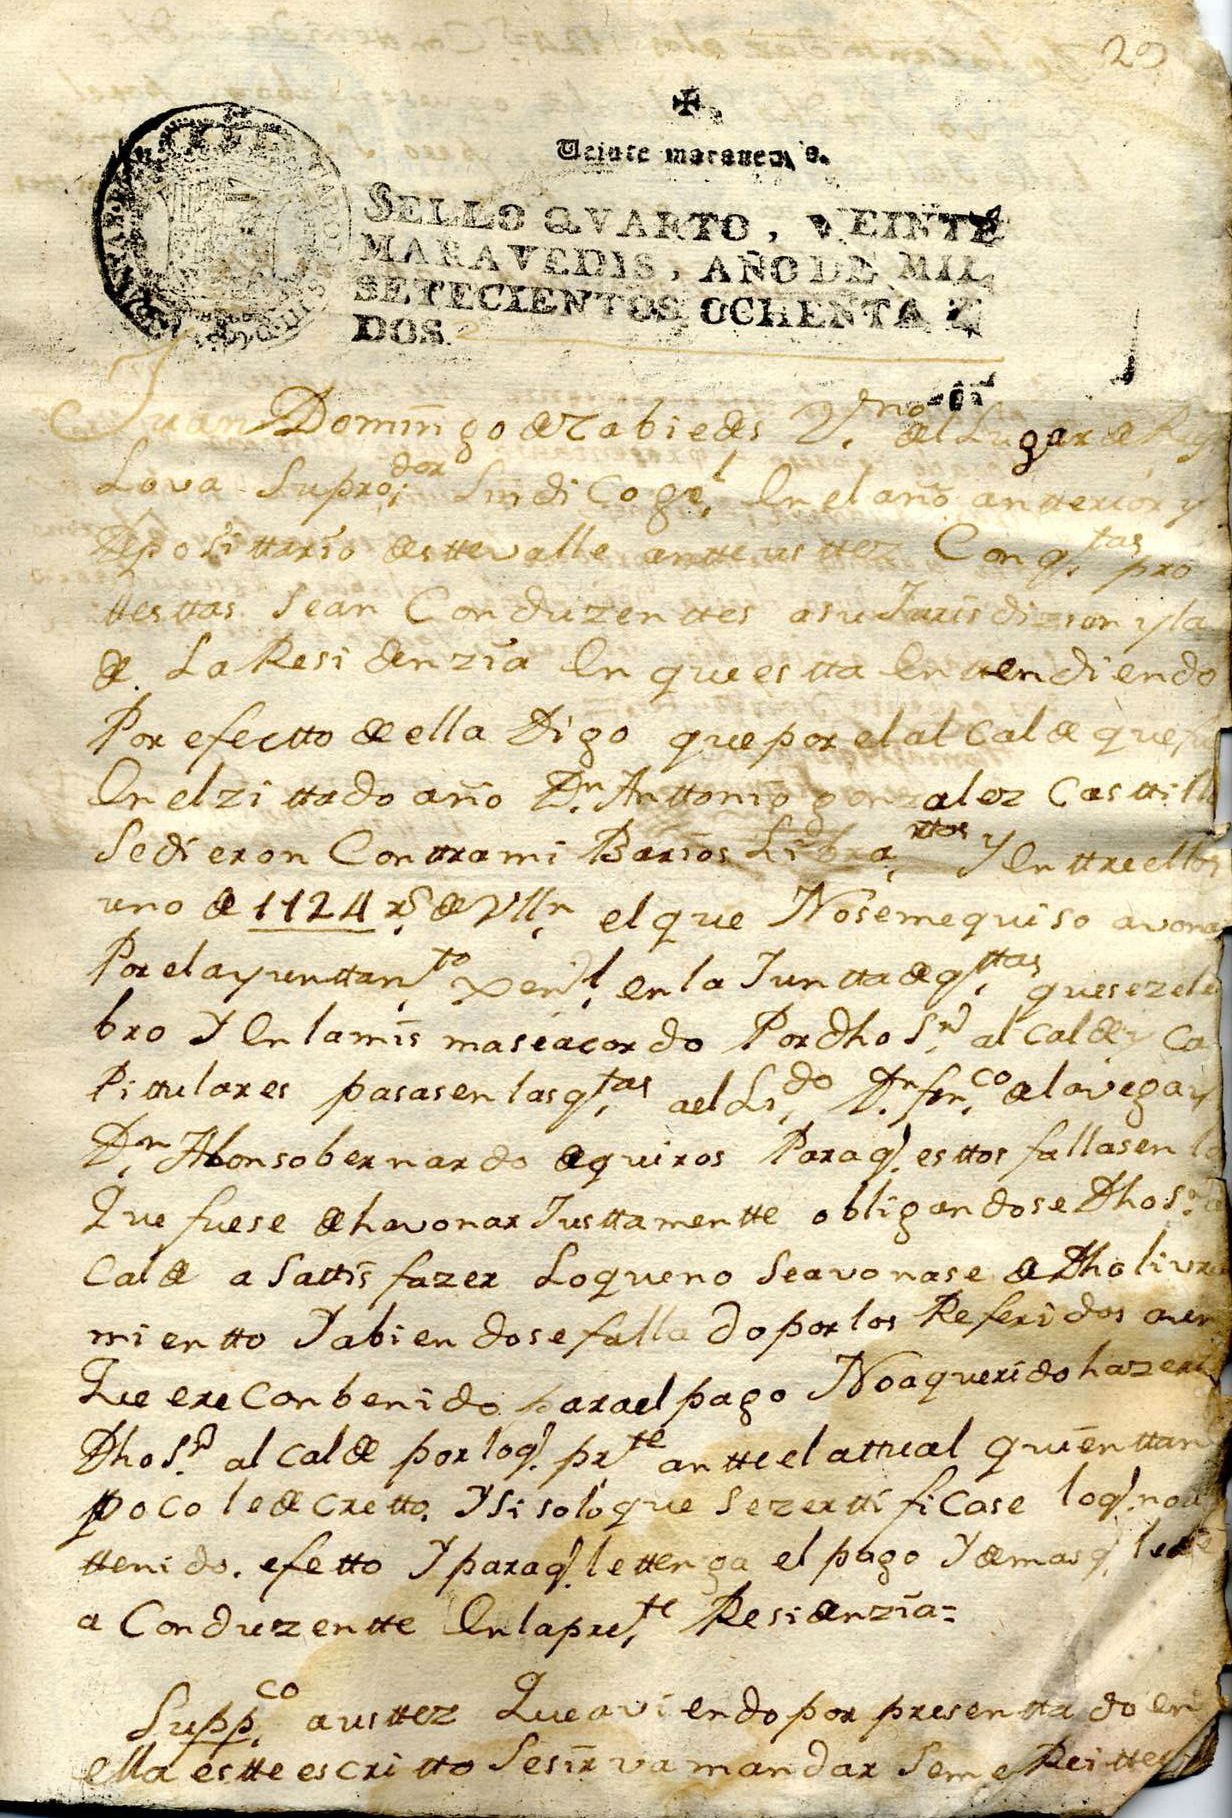 29
✠
Veinte maravedis.
SELLO QVARTO, VEINTE
MARAVEDIS, AÑO DE MIL
SETECIENTOS OCHENTA Y
DOS.
Juan Domingo de tabiedes V.no del Lugar de
Lova Su pro.dor Sindico ge.l En el año antterior y
Deposittario desttevalle antte usttez Con q.tas pro
ttesttas Sean Conduzenttes asu Jurisdizion y la
de La Residenzia En que estta Enttendiendo
Por efectto de ella Digo que por el alcalde que
En el zittado año D.n Anttonio gonzalez Casttillo
Se dieron Conttra mi Barios Libra.ttos Y Enttre ellos
uno de 1124 rs. de Vll.n el que No seme quiso avonar
Por el ayunttam.to Xen.l en la Juntta de q.ttas que se zele
bro Y En la misma se acordo Por dho S.r alcalde y Ca
Pittulares pasasen las q.tas ael Li.do D.n fr.co de la vega y
D.n Alonso bernardo de quiros Para q. esttos fallasen lo
Que fuese de havonar Justtamentte obligandose Dho S.r al
Calde a Sattisfazer Lo que no Se avonase de Dho livra
mientto Y abiendose fallado por los Referidos
Que ere Conbenido para el pago No a querido hazerlo
Dho S.r alcalde por lo q. pr.te antte el attual quien ttan
poco le decretto. Y Si solo que Se zerttificase lo q. no
ttenido. efetto Y para q. le ttenga el pago Y demas q.
a Conduzentte En la pre.te Residenzia=
Supp.co a usttez Que aviendo por presenttado en
ella estte escritto Se sirva mandar Seme